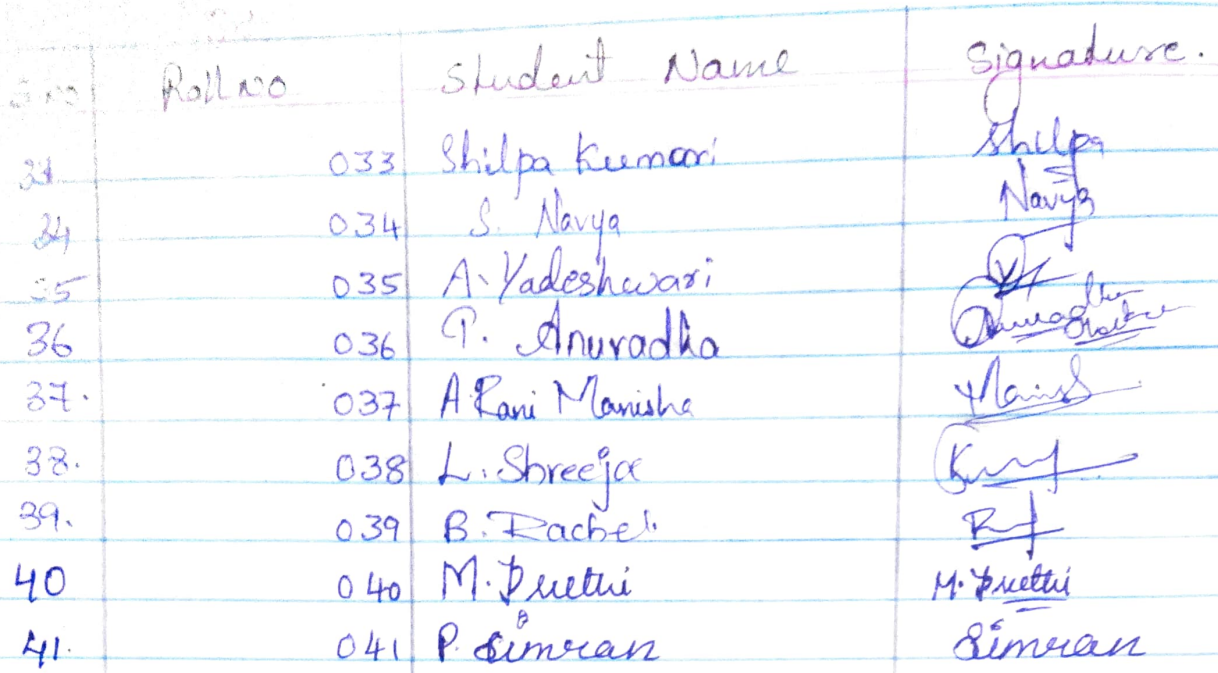 S.no Roll no Student Name Signature.
33 033 Shilpa Kumari Shilpa
34 034 S. Navya Navya
35 035 A. Yadeshwari
36 036 P. Anuradha Anuradha
37. 037 A Rani Manisha Manis
38. 038 L. Shreeja
39. 039 B. Rachel.
40 040 M. Preethi M. Preethi
41. 041 P. Simran Simran